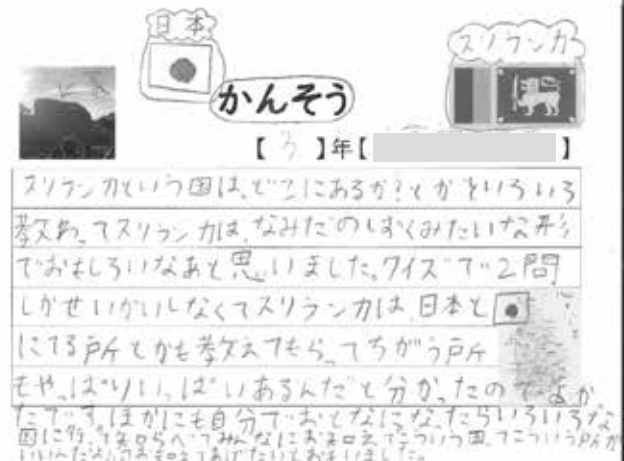 日本
スリランカ
かんそう
【 3 】年【 】
スリランカという国は、どこにあるか?とかをいろいろ
教わってスリランカは、なみだのしずくみたいな形
でおもしろいなあと思いました。クイズで2問
しかせいかいしなくてスリランカは、日本と
にてる所とかも教えてもらってちがう所
もやっぱりいっぱいあるんだと分かったのでよか
たです。ほかにも自分でおとなになったらいろいろな
国に行ってみんなにおしえてこういう国ってこういう所が
いいんだよっておしえてあげたいとおもいました。